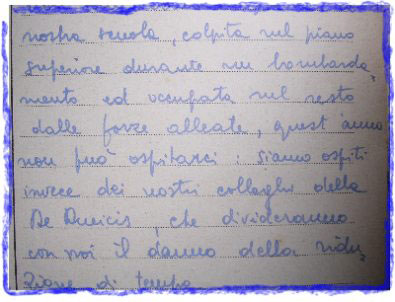 nostra scuola, colpita nel piano
superiore durante un bombarda=
mento ed occupata nel resto
dalle forze alleate, quest'anno
non può ospitarci: siamo ospiti
invece dei nostri colleghi della
De Amicis, che divideranno
con noi il danno della ridu=
zione di tempo